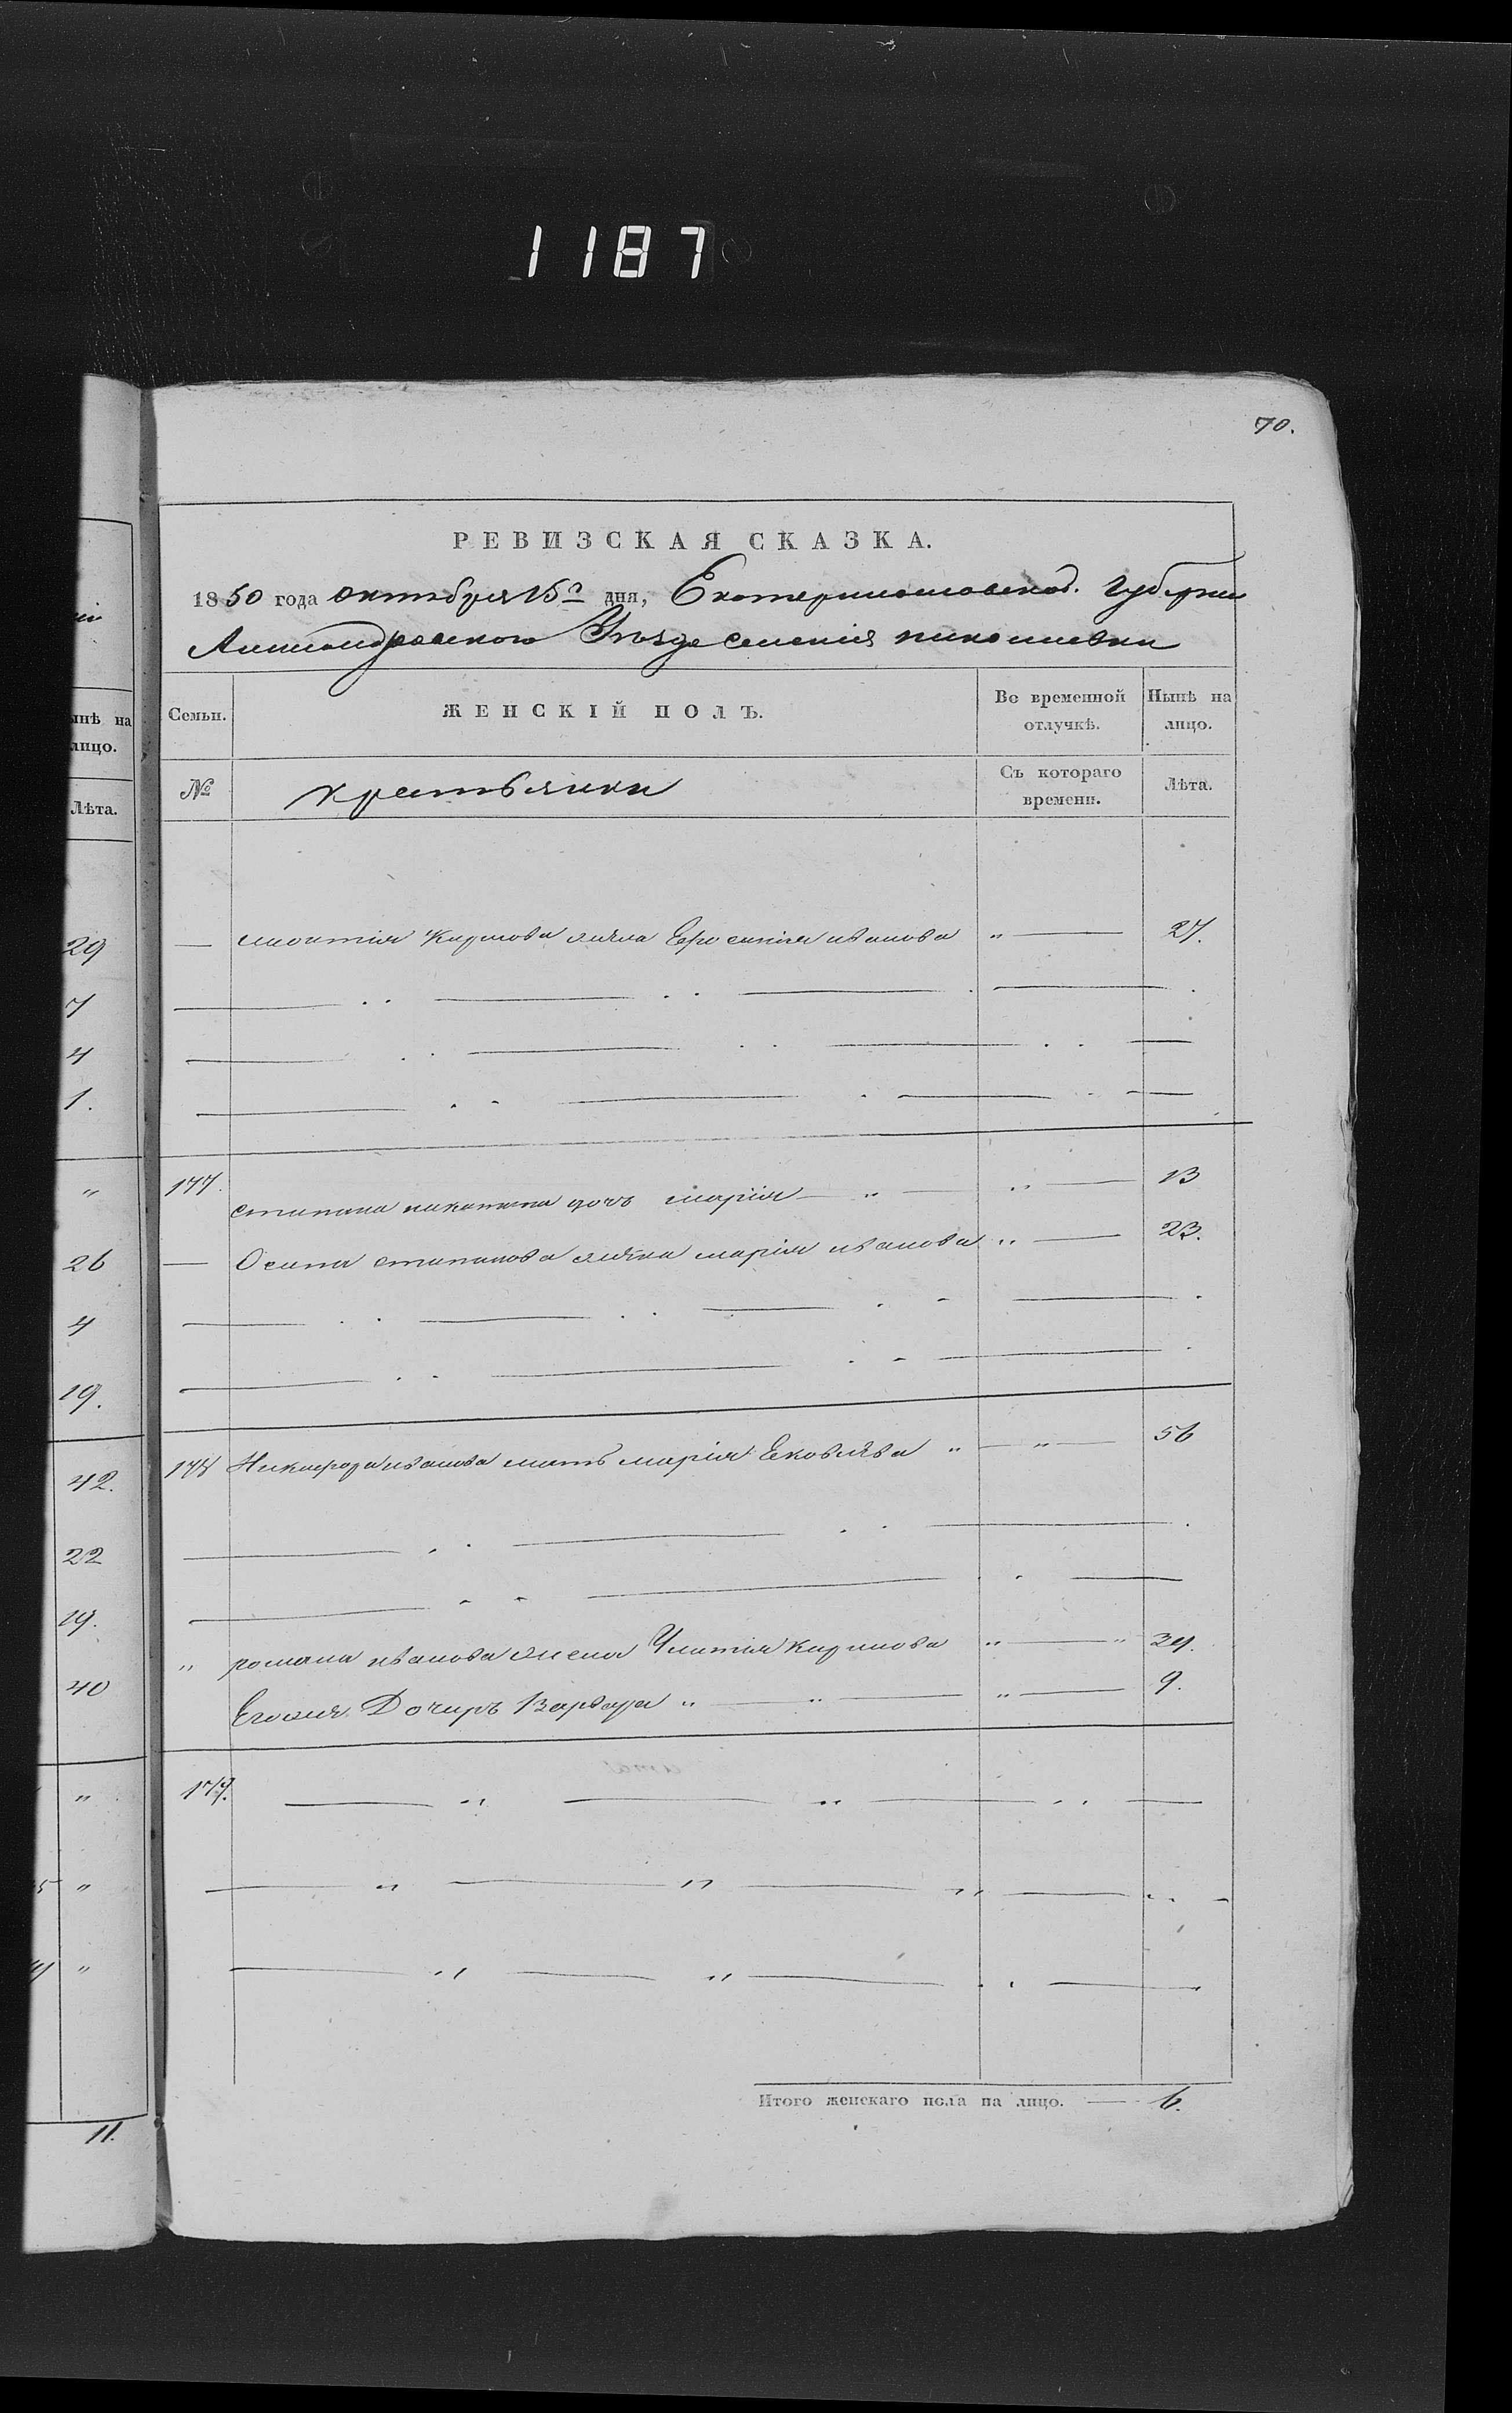 1187
70.
РЕВИЗСКАЯ СКАЗКА.
1850 года октября 15го дня, Екатеринославской Губернии
Александровского Уезда селения николаевки
Семьи.
ЖЕНСКІЙ ПОЛЪ.
Во временной отлучкѣ.
Нынѣ на лицо.
№
крестьянки
Съ котораго времени.
Лѣта.
— Кирилова жена Ефросинія иванова " — 27.
177. степана никитина дочь марія — " — " — 13
— Осипа степанова жена марія иванова " — 23.
178 Никифора иванова мать маріяЕковлѣва " — " — 56
" романа иванова жена Кирилова " — "
Егоже Дочиръ Варвара " — " — " — 9.
179.
Итого женскаго пола на лицо. — 6.
нѣ на
лицо.
Лѣта.
29
7
4
1.
"
26
4
19.
42.
22
19.
40
"
"
"
11.